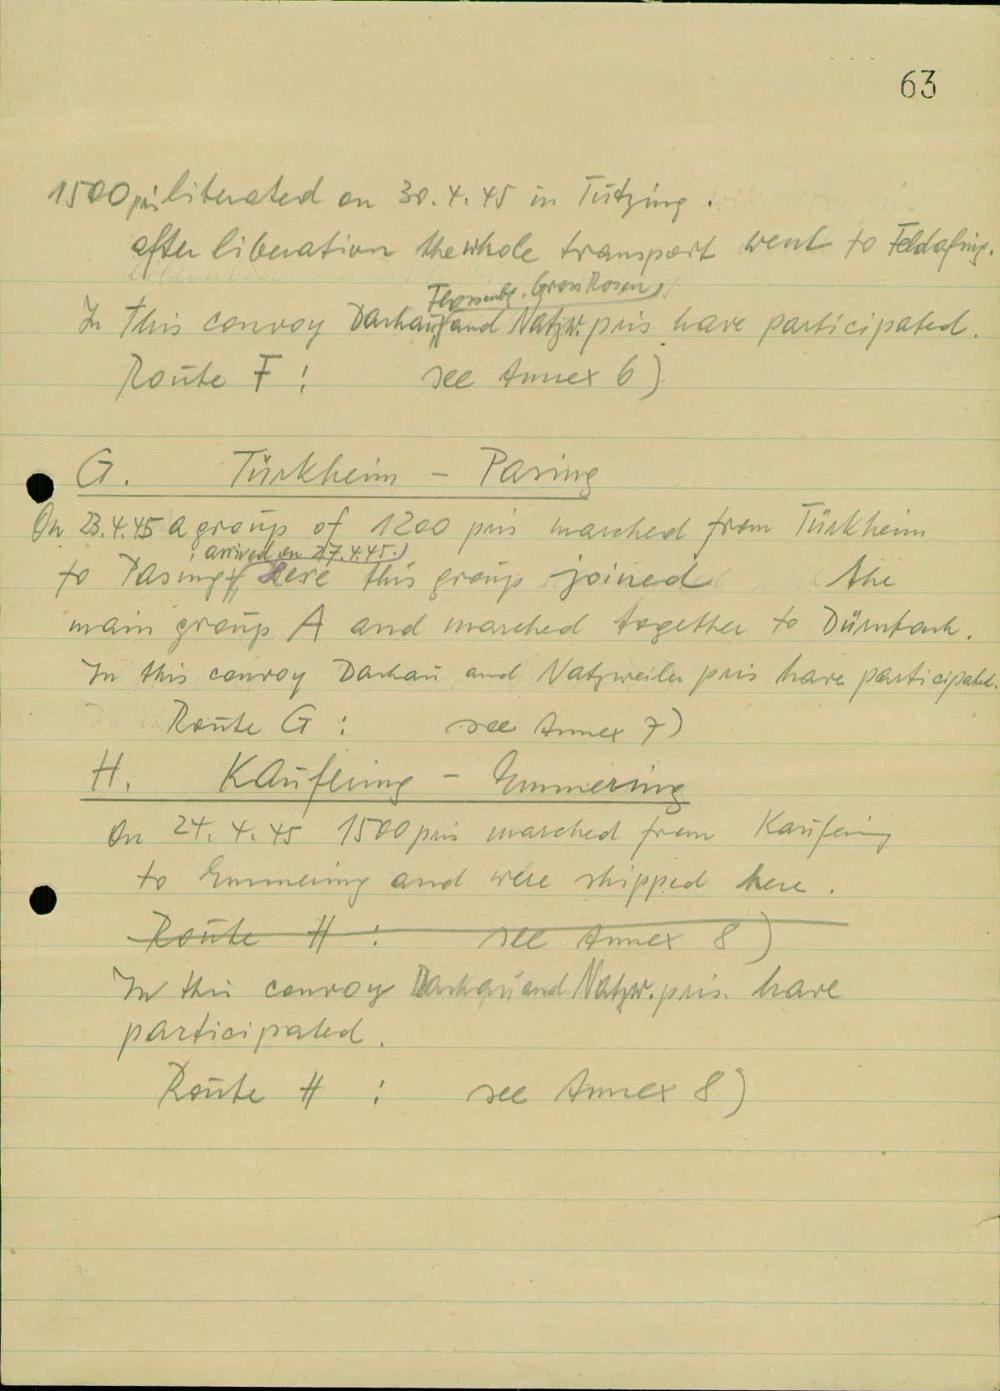 63
1500 pris liberated on 30.4.45 in Tutzing.
after liberation the whole transport went to Feldafing.
Flossenbg. Gross Rosen,
In this convoy Dachau, and Natzw. pris have participated.
Route F : see Annex 6)
G. Türkheim - Pasing
On 23.4.45 a group of 1200 pris marched from Türkheim
(arrived on 27.4.45.)
to Pasing. Here this group joined the
main group A and marched together to Dürnbach.
In this convoy Dachau and Natzweiler pris have participated.
Route G : see Annex 7)
H. Kaufering - Emmering
On 24.4.45 1500 pris marched from Kaufering
to Emmering and were shipped here.
Route H : see Annex 8)
In this convoy Dachau and Natzw. pris. have
participated.
Route H : see Annex 8)